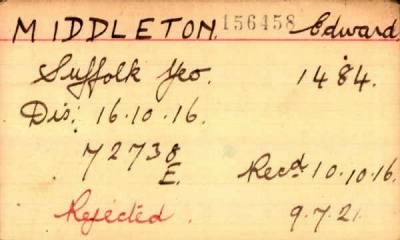 MIDDLETON. 156458 Edward
Suffolk Yeo. 1484.
Dis: 16.10.16.
72738
E. Recd 10.10.16.
Rejected. 9.7.21.